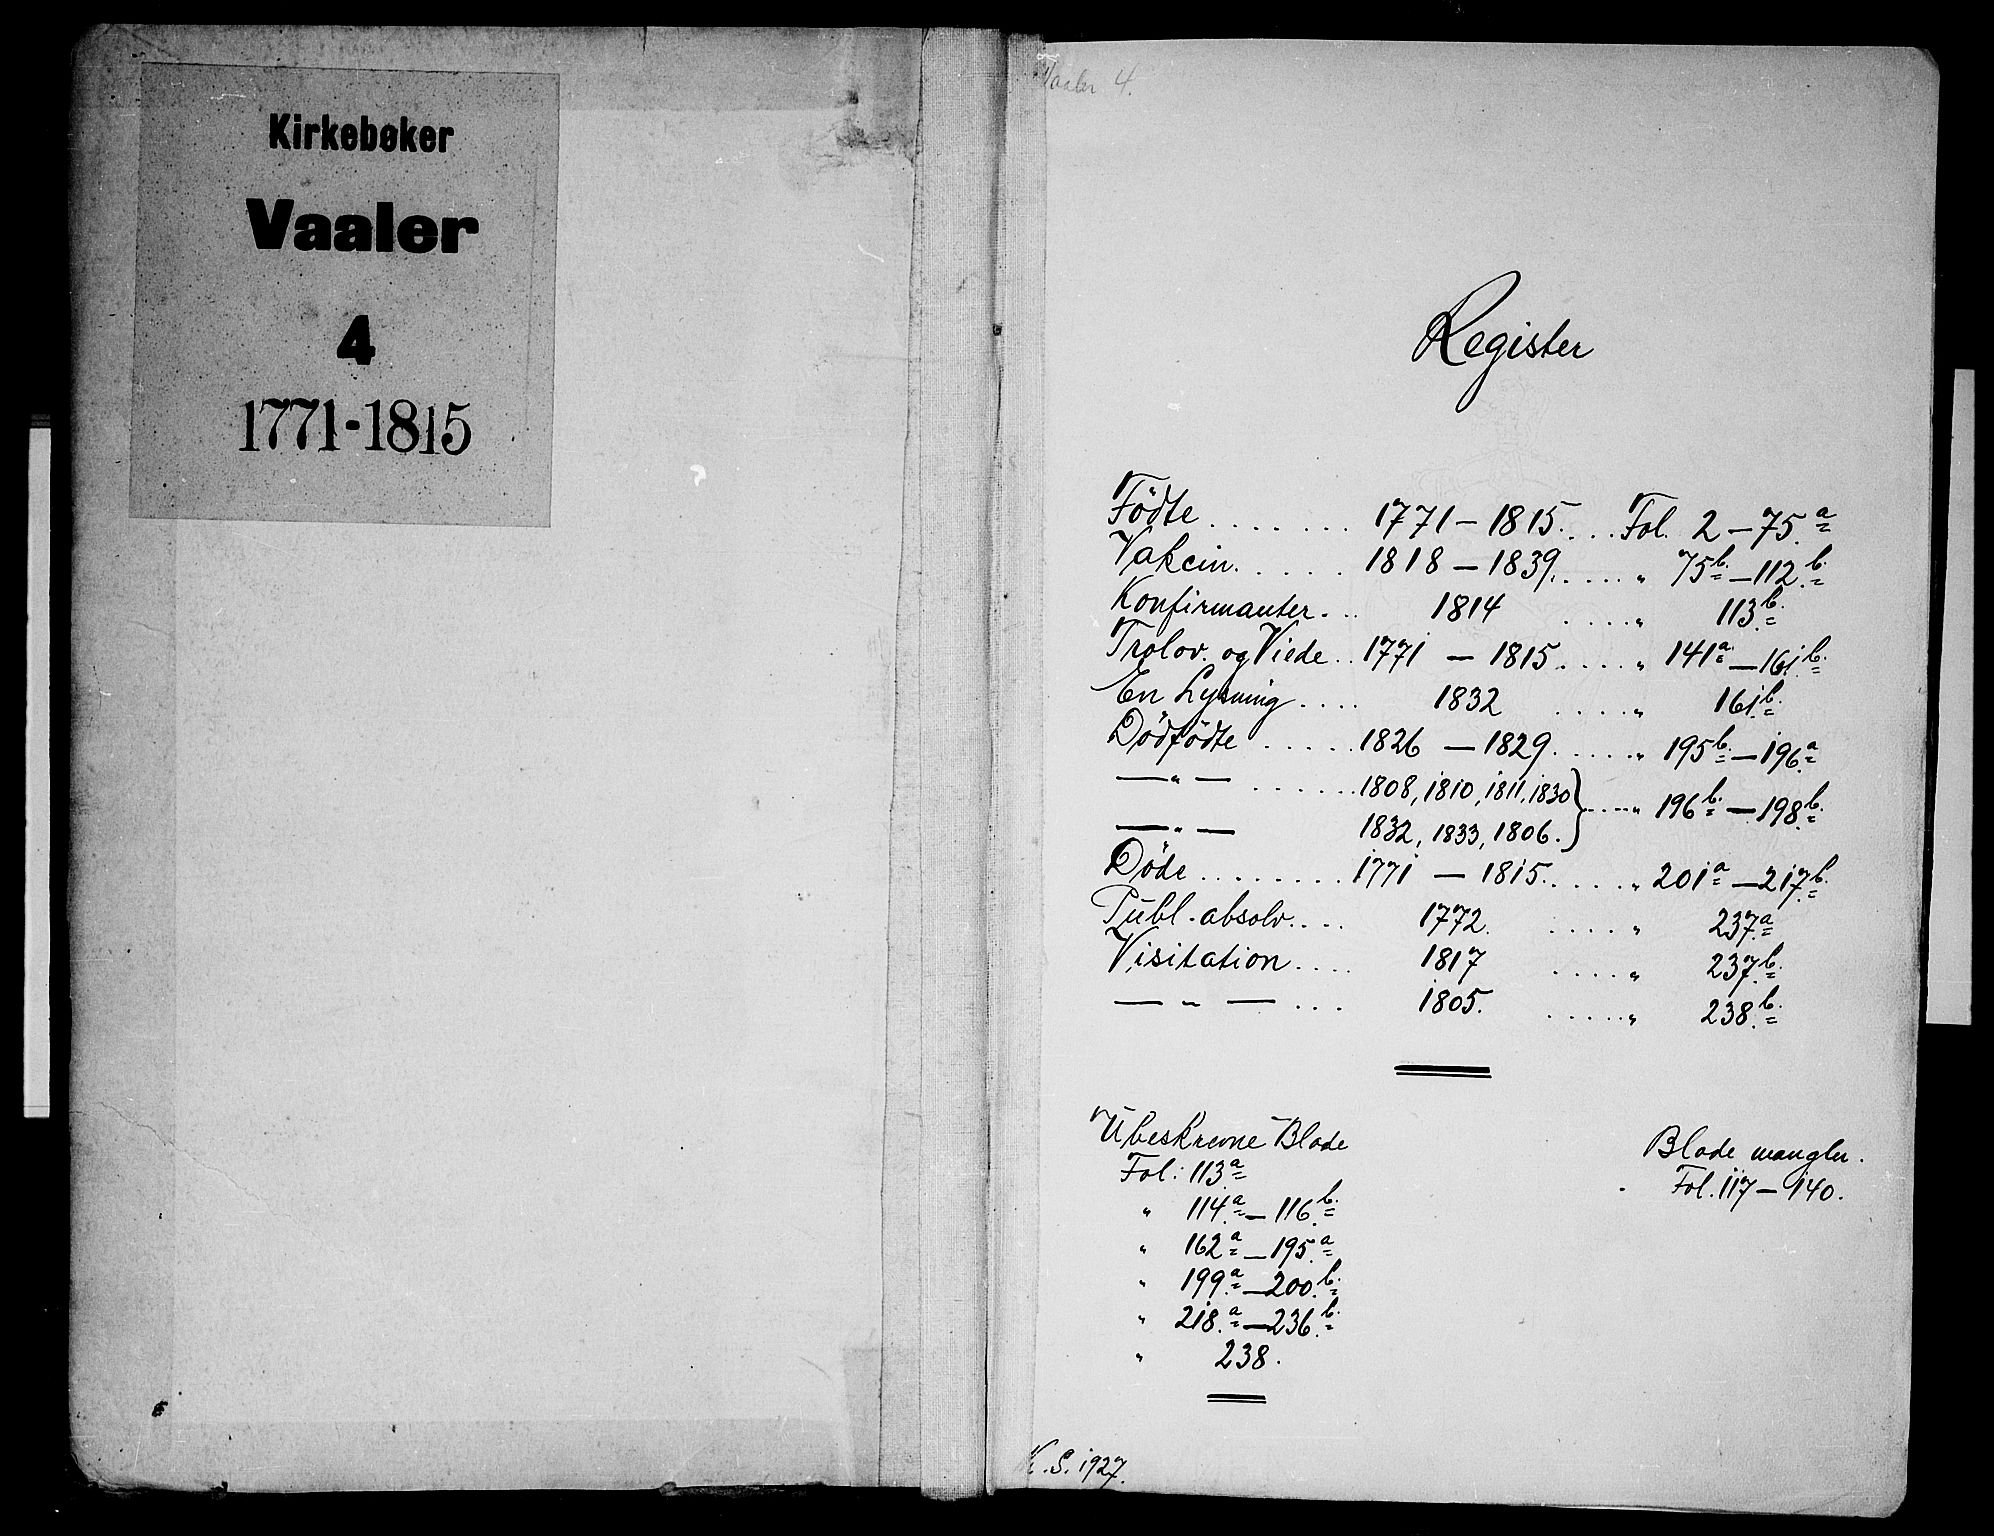 Kirkebøker
Vaaler
4
1771-1815
Vaaler 4.
Register
Födte ........ 1771 – 1815. .... Fol. 2 – 75.a
Vakcin. ..... 1818 – 1839. ..... " 75b. – 112.b.
Konfirmanter. .. 1814 ..... " 113.b.
Trolov. og Viede .. 1771 – 1815. .... " 141a. – 161.b.
En Lysning .... 1832 ..... " 161.b.
Dödfödte ..... 1826 – 1829. .... " 195b. – 196.a
— " — ...... 1808, 1810, 1811, 1830 } ..... " 196b. – 198.b.
— " — 1832, 1833, 1806.
Döde ........ 1771 – 1815. .... " 201a – 217.b.
Publ. absolv. ... 1772. ..... " 237.a
Visitation .... 1817 ..... " 237.b.
— " — ... 1805. ..... " 238.b.
Ubeskrevne Blade
Fol: 113a
" 114.a – 116.b.
" 162.a – 195.a
" 199.a – 200.b.
" 218.a – 236.b.
" 238.
Blade mangler.
Fol. 117 – 140.
K.S. 1927.